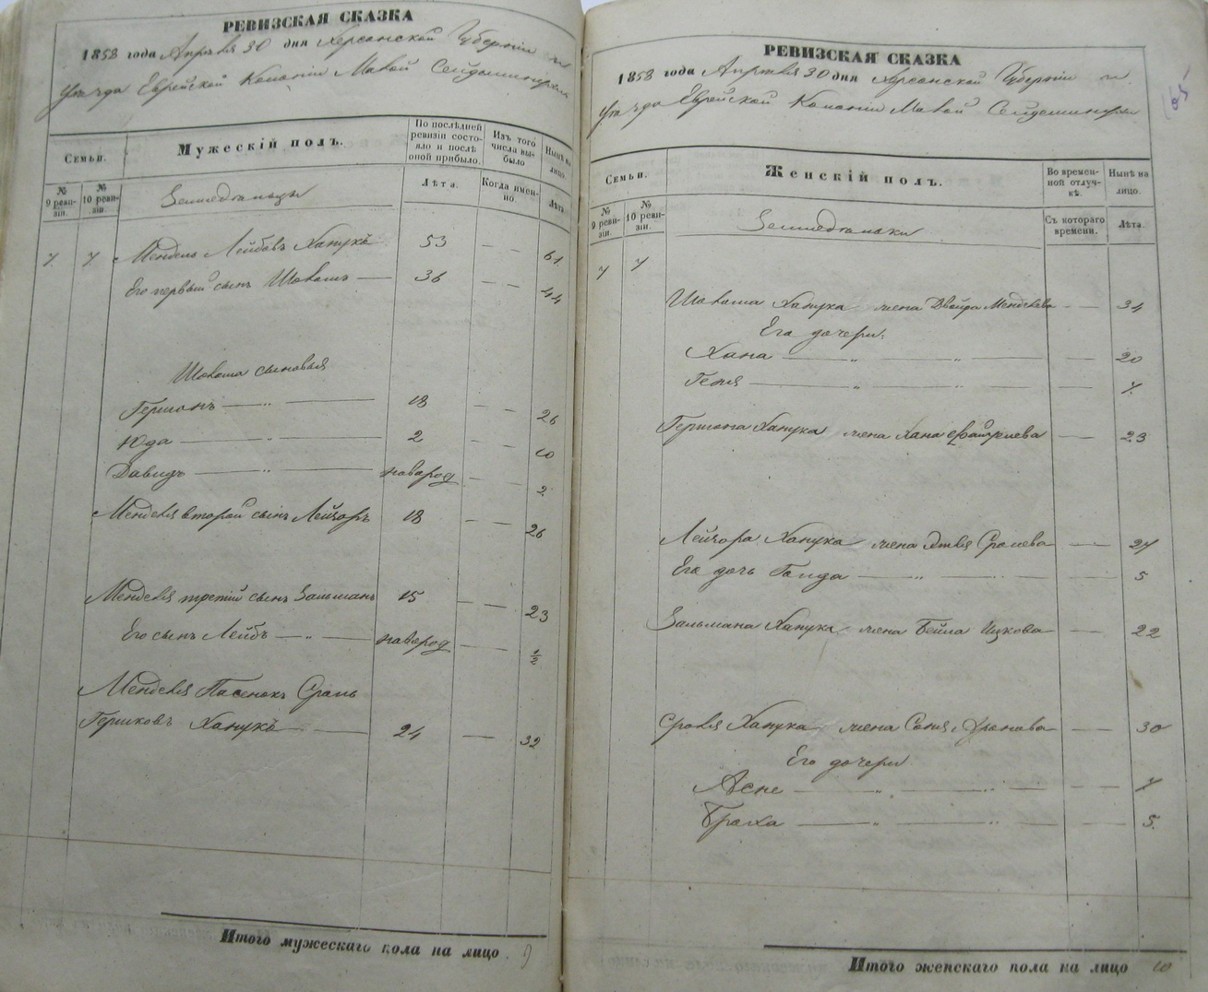 РЕВИЗСКАЯ СКАЗКА
1858 года Апреля 30 дня Херсонской Губерніи и
уезда Еврейской Колоніи Малой Сейдеминухи
Семьи.
Мужескій полъ.
По послѣдней ревизіи состояло и послѣ оной прибыло.
Изъ того числа выбыло
Нынѣ на лицо.
№ 9 ревизіи.
№ 10 ревизіи.
Земледельцы
Лѣта.
Когда именно.
Лѣта.
7. 7. Мендель Лейбовъ Ханукъ 53 — — 61
Его первый сынъ Шолемъ — 36 — — 44
Шолема сыновья
Гершонъ — " — 18 — — 26
Юда — " — 2 — — 10
Давидъ — " — новород — — 2
Менделя второй сынъ Лейзоръ 18 — — 26
Менделя третій сынъ Зальманъ 15 — — 23
Его сынъ Лейбъ — " — новород — — ½
Менделя Пасенокъ Сроль
Гершковъ Ханукъ — 24 — 32
Итого мужескаго пола на лицо 9
РЕВИЗСКАЯ СКАЗКА
1858 года Апреля 30 дня Херсонской Губерніи и
уезда Еврейской Колоніи Малой Сейдеминухи
Семьи.
Женскій полъ.
Во временной отлучкѣ.
Нынѣ на лицо.
№ 9 ревизіи.
№ 10 ревизіи.
Земледельки
Съ котораго времени.
Лѣта.
7 7
Шолема Ханука жена Двейра Менделева — — 34
Его дочери,
Хана — " — " — — 20
Геня — " — " — — 7.
Гершона Ханука жена Хана — — 23
Лейзора Ханука жена Сролева — — 27
Его дочь Голда — " — " — — 5
Зальмана Ханука жена Бейла Ицкова — — 22
Сроля Ханука жена Соня — — 30
Его дочери
Асне — " — " — — 7
Браха — " — " — — 5.
Итого женскаго пола на лицо 10